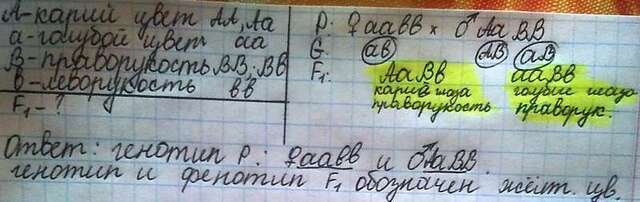 А-карий цвет АА, Аа
а-голубой цвет аа
В-праворукость ВВ; Вв
в-леворукость вв
F₁-?
P: ♀ аавв × ♂ Аа ВВ
G: ав АВ аВ
F₁: АаВв ааВв
карий глаза голубые глаза
праворукость праворук.
Ответ: генотип P: ♀аавв и ♂АаВВ.
генотип и фенотип F₁ обозначен жёлт. цв.